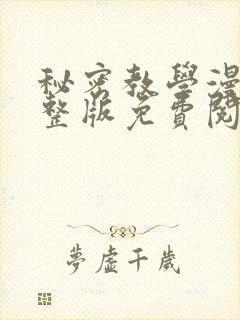 秘密教學漫
整版免費閱
夢虛千歲